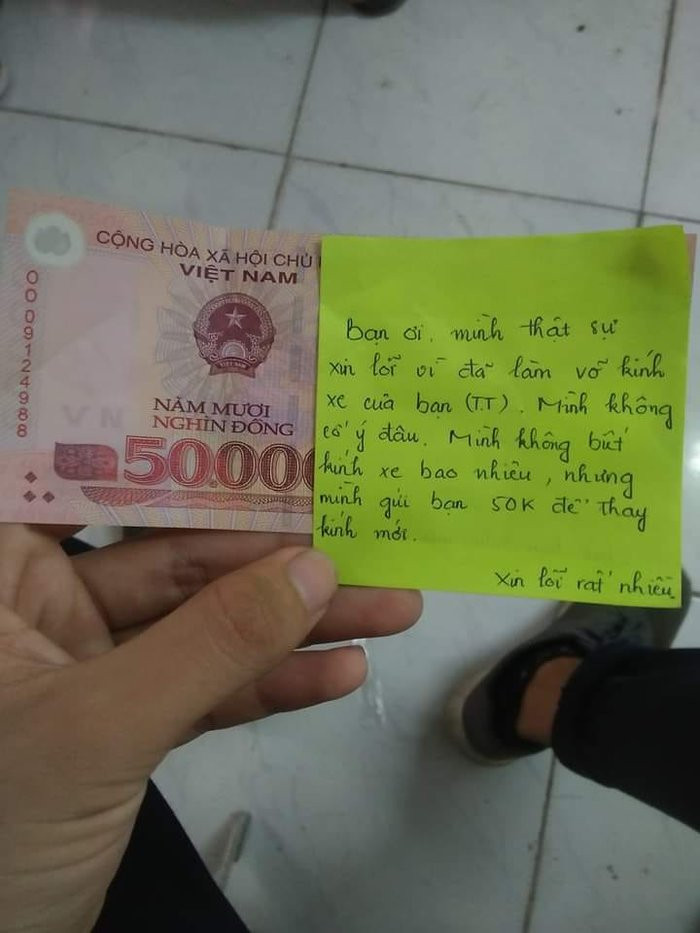 CỘNG HÒA XÃ HỘI CHỦ
VIỆT NAM
00091124988
VIỆT NAM
VN
NĂM MƯƠI
NGHÌN ĐỒNG
50.000
Bạn ơi, mình thật sự
xin lỗi vì đã làm vỡ kính
xe của bạn (TT). Mình không
cố ý đâu. Mình không biết
kính xe bao nhiêu, nhưng
mình gửi bạn 50K để thay
kính mới.
Xin lỗi rất nhiều